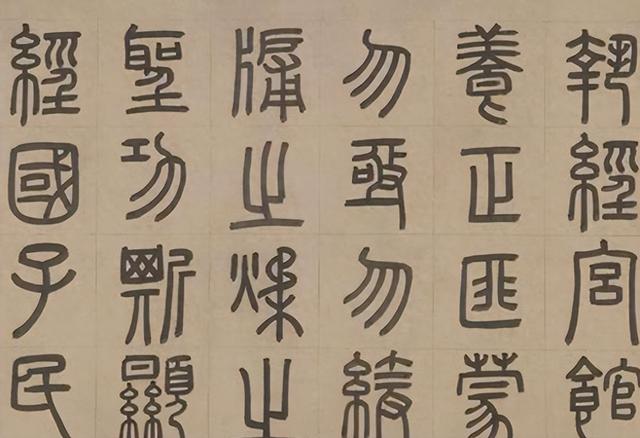 執經宮館
養正匪蒙
勿亟勿
牖之之
聖功斯顯
經國子民